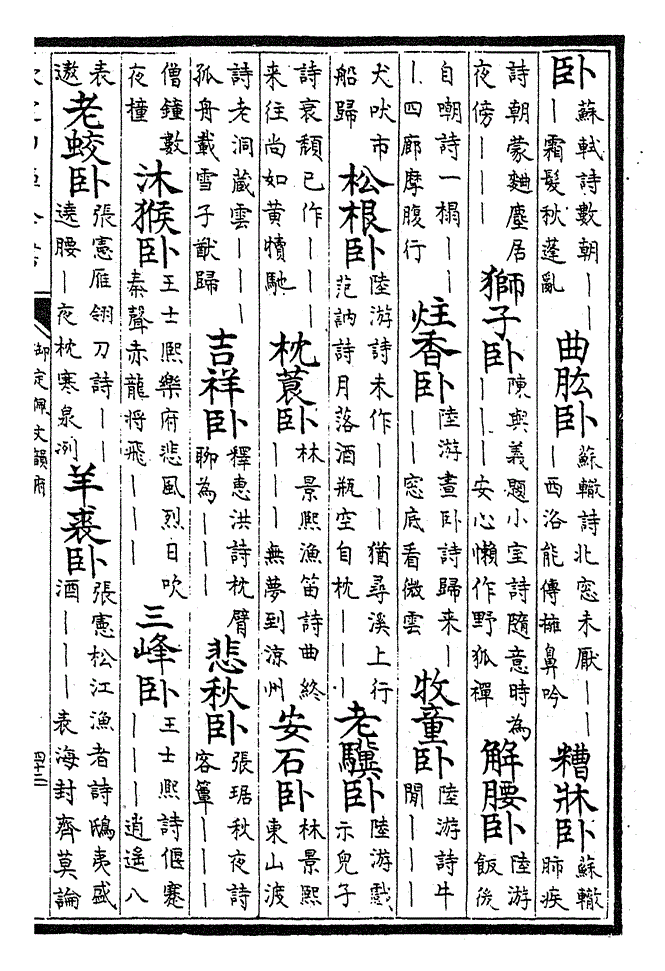 卧蘇軾詩數朝丨丨丨霜髮秋蓬亂 曲肱卧蘇轍詩北窓未厭丨丨丨西洛能傳擁鼻吟 糟牀卧蘇轍肺疾
詩朝蒙麯塵居夜傍丨丨丨 獅子卧陳與義題小室詩隨意時為丨丨丨安心懶作野狐禪 解腰卧陸游飯後
自嘲詩一榻丨丨丨四廊摩腹行 炷香卧陸游晝卧詩歸来丨丨丨窓底看微雲 牧童卧陸游詩牛閒丨丨丨
犬吠市船歸 松根卧陸游詩未作丨丨丨猶尋溪上行范訥詩月落酒瓶空自枕丨丨丨 老驥卧陸游戲示兒子
詩衰頹已作丨丨丨来往尚如黄犢馳 枕蓑卧林景熙漁笛詩曲終丨丨丨無夢到涼州 安石卧林景熙東山渡
詩老洞蔵雲丨丨丨孤舟載雪子猷歸 吉祥卧釋惠洪詩枕臂聊為丨丨丨 悲秋卧張琚秋夜詩客簟丨丨丨
僧鐘數夜撞 沐猴卧王士熙樂府悲風烈日吹秦聲赤龍将飛丨丨丨 三峰卧王士熙詩偃蹇丨丨丨逍遙八
表遨 老蛟卧張憲雁翎刀詩丨丨遶腰丨夜枕寒泉冽 羊裘卧張憲松江漁者詩鴟夷盛酒丨丨丨表海封齊莫論
御定佩文韻府